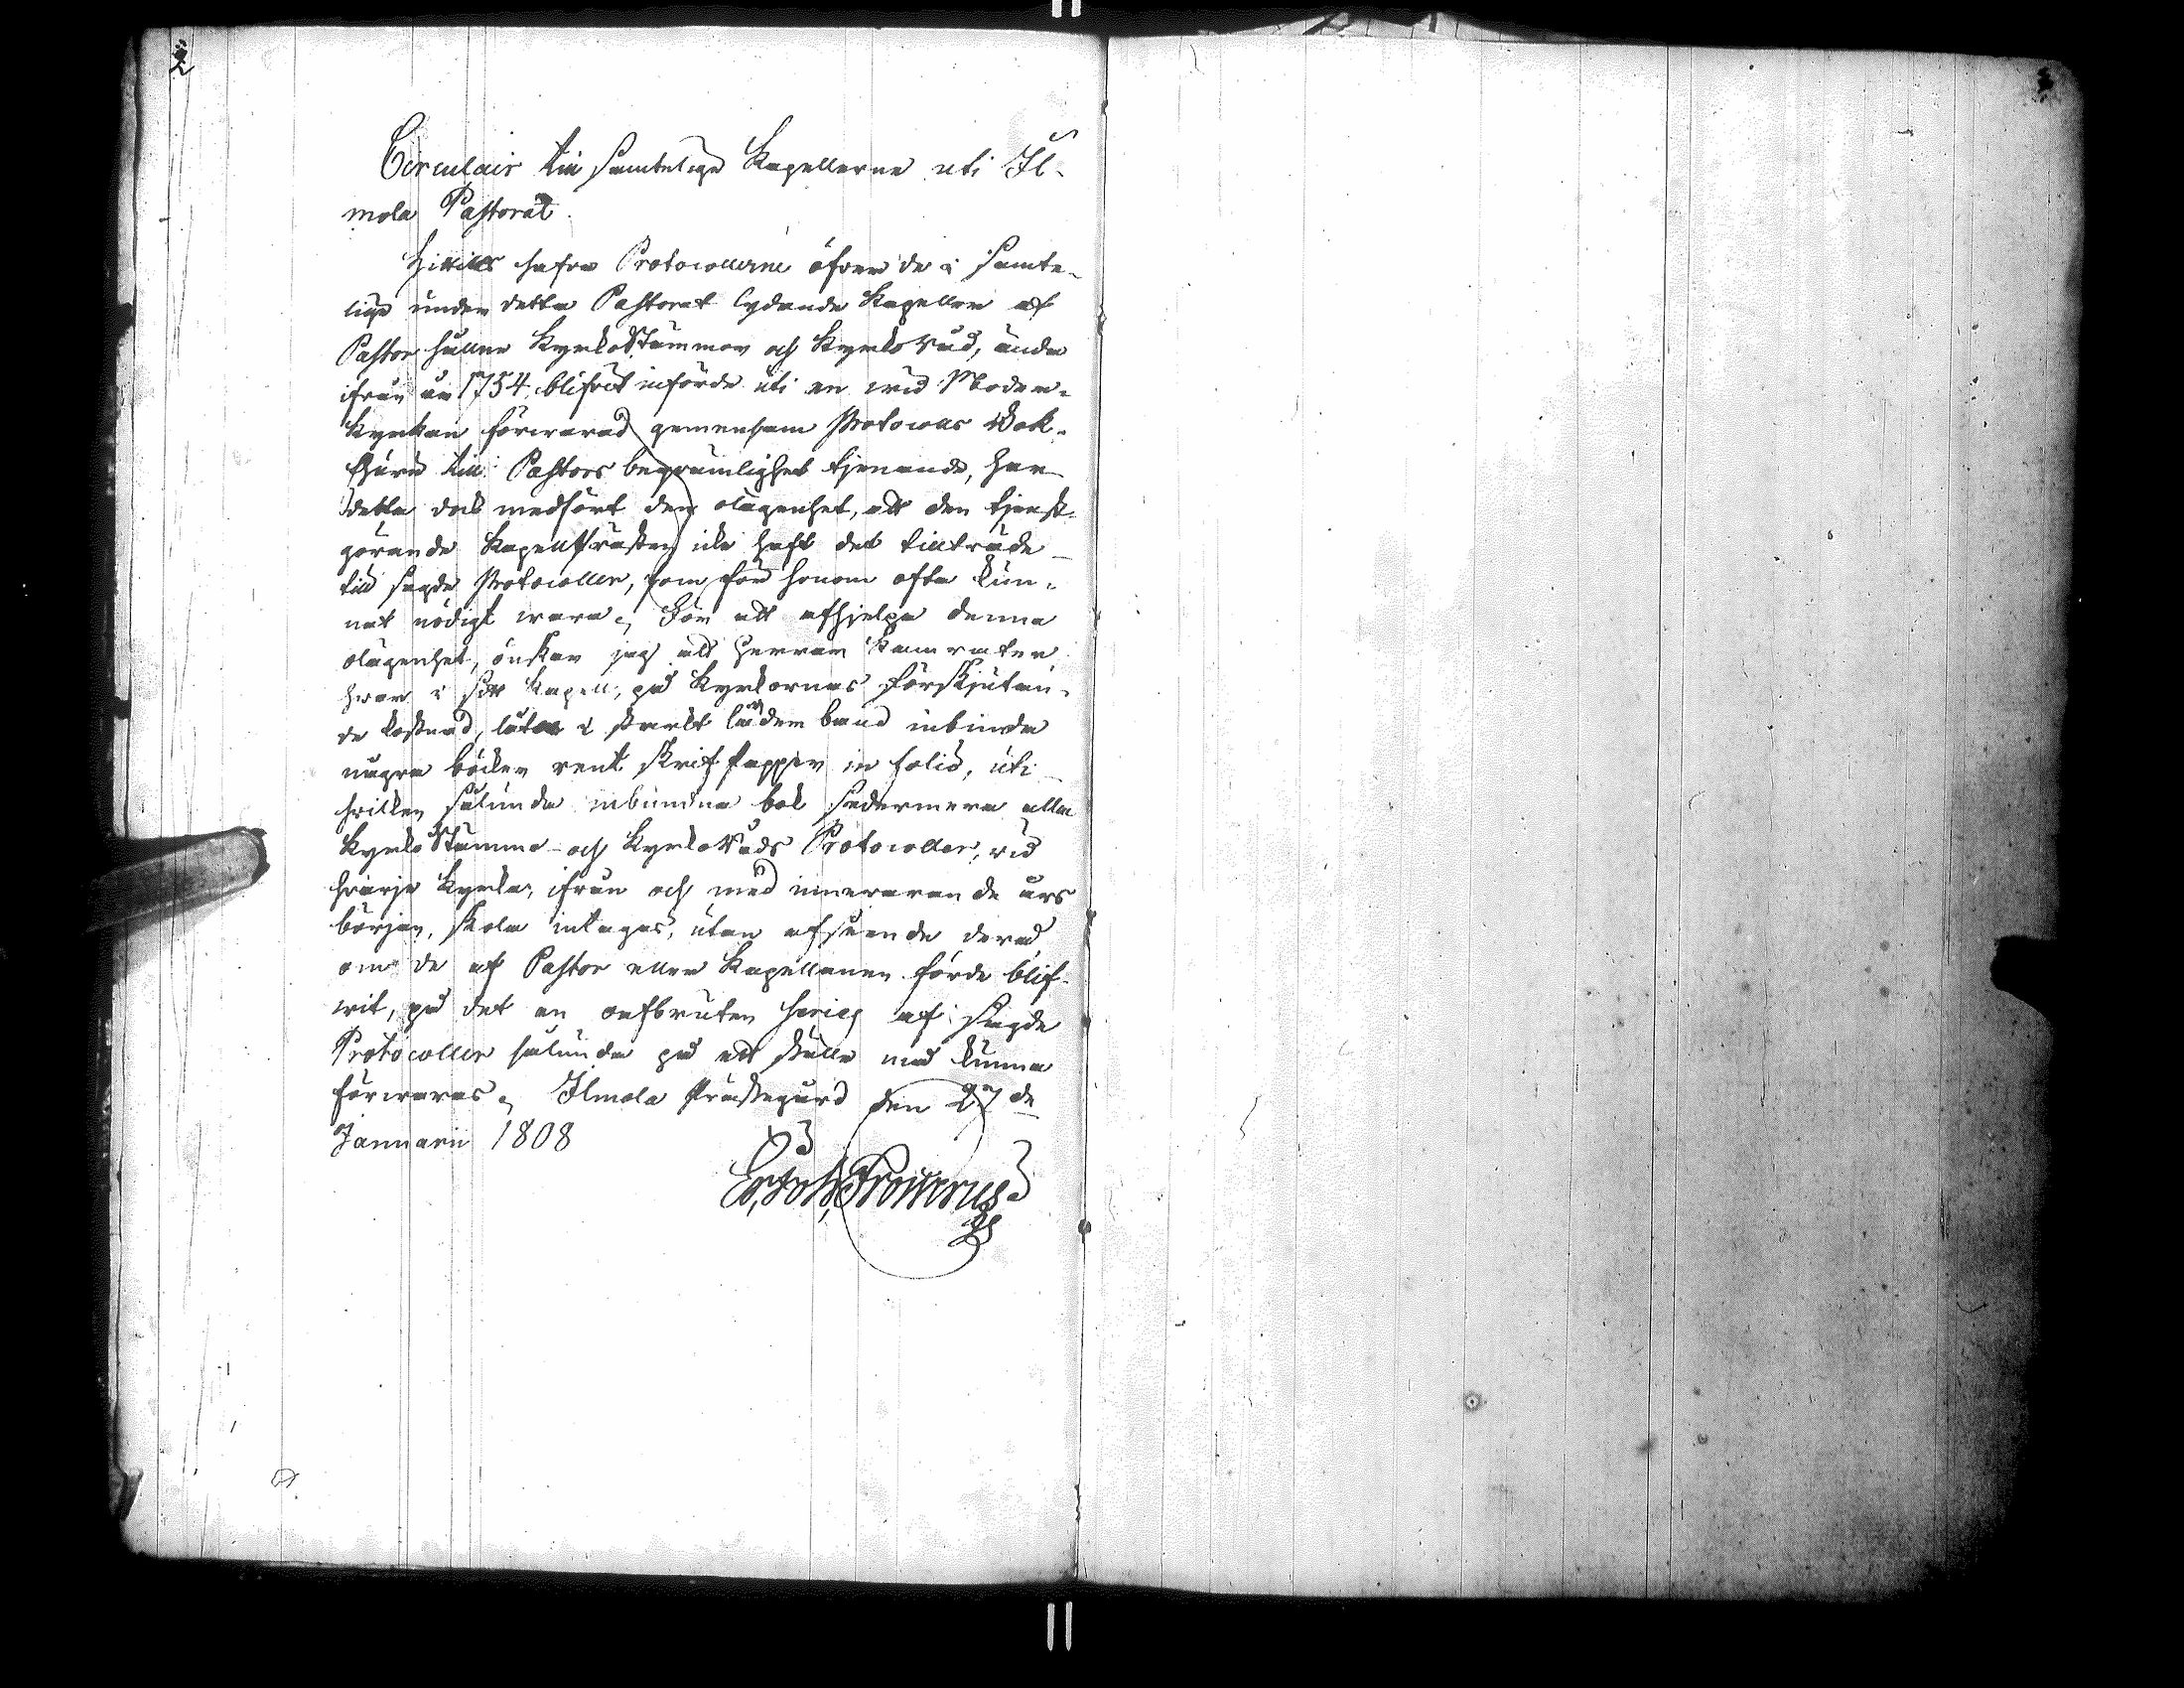 2
Circulair till samtelige Kapellerne uti Il-
mola Pastorat.
Hittills hafva Protocollerne öfver de i samte-
lige under detta Pastorat lydande Kapeller af
Pastor hållne Kyrkostämmor och Kyrkoråd, ända
ifrån år 1754, blifvit införde uti en wid Moder-
kyrkan förwarad gemensam Protocolls Bok.
Ehuru till Pastors beqvämlighet tjenande, har
detta dock medfört den olägenhet, att den tjenst-
görande Kapellpresten icke haft det tillträde
till sagde Protocoller, som för honom ofta kun-
nat nödigt wara. För att afhjelpa denna
olägenhet, önskar jag att Herrar Kamrater
hvar i sitt Kapell, på Kyrkornas förskjutan-
de kostnad, låta i starkt läder band inbinda
några böcker rent skrif papper in folio, uti
hvilken sålunda inbundna bok sedermera alla
KyrkoStämmo- och KyrkoRåds Protocoller, wid
hvarje Kyrka, ifrån och med innevarande års
början, skola intagas, utan afseende derå,
om de af Pastor eller Kapellanen förde blif-
wit, på det en oafbruten Serie af sagde
Protocoller sålunda på ett ställe må kunna
förwaras. Ilmola Prästegård den 27 de
Januarii 1808